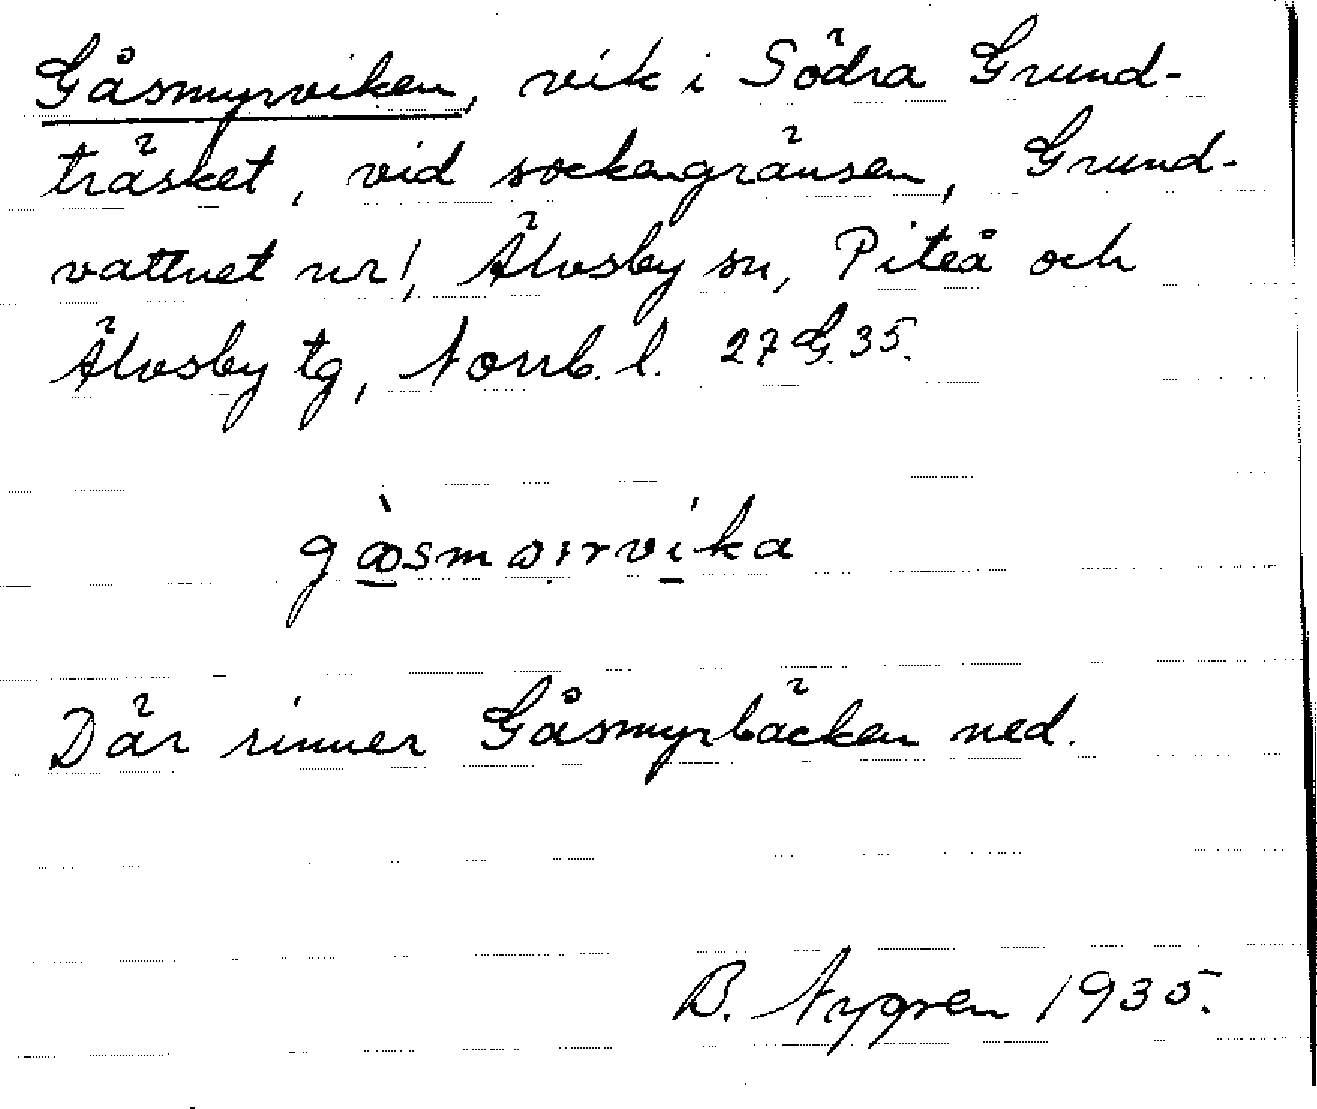 Gåsmyrviken, vik i Södra Grund-
träsket, vid sockengränsen, Grund-
vattnet nr 1, Älvsby sn, Piteå och
Älvsby tg, Norrb. l. 27 G. 35.
Där rinner Gåsmyrbäcken ned.
B. Nygren 1935.